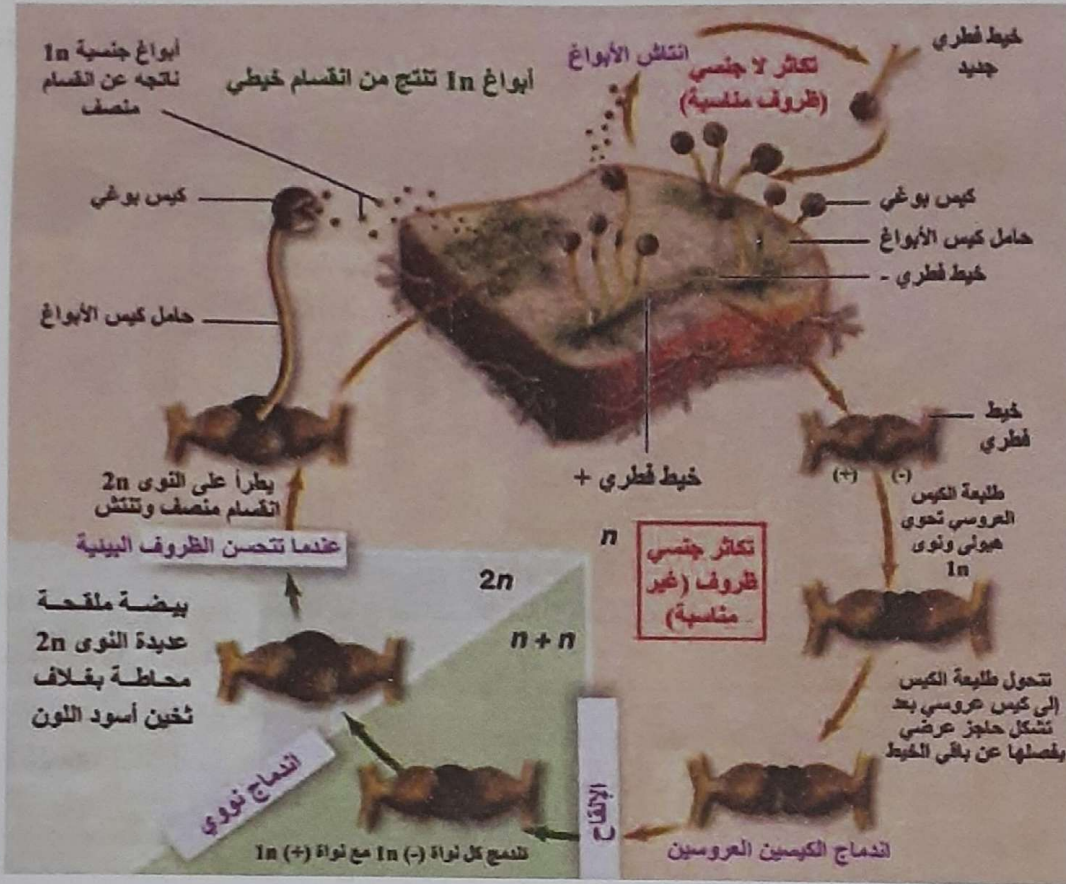 أبواغ جنسية 1n
ناتجه عن انقسام
منصف
أبواغ 1n تنتج من انقسام خيطي
انتاش الأبواغ
تكاثر لا جنسي
(ظروف مناسبة)
خيط فطري
جديد
كيس بوغي
حامل كيس الأبواغ
كيس بوغي
حامل كيس الأبواغ
خيط فطري -
خيط فطري +
خيط
فطري
(+)
(-)
طليعة الكيس
العروسي تحوي
هيولى ونوى
1n
تتحول طليعة الكيس
إلى كيس عروسي بعد
تشكل حاجز عرضي
يفصلها عن باقي الخيط
اندماج الكيسين العروسين
n
تكاثر جنسي
ظروف (غير
مناسبة)
الإلقاح
n + n
تندمج كل نواة (-) 1n مع نواة (+) 1n
اندماج نووي
2n
بيضة ملقحة
عديدة النوى 2n
محاطة بغلاف
ثخين أسود اللون
عندما تتحسن الظروف البيئية
يطرأ على النوى 2n
انقسام منصف وتنتش